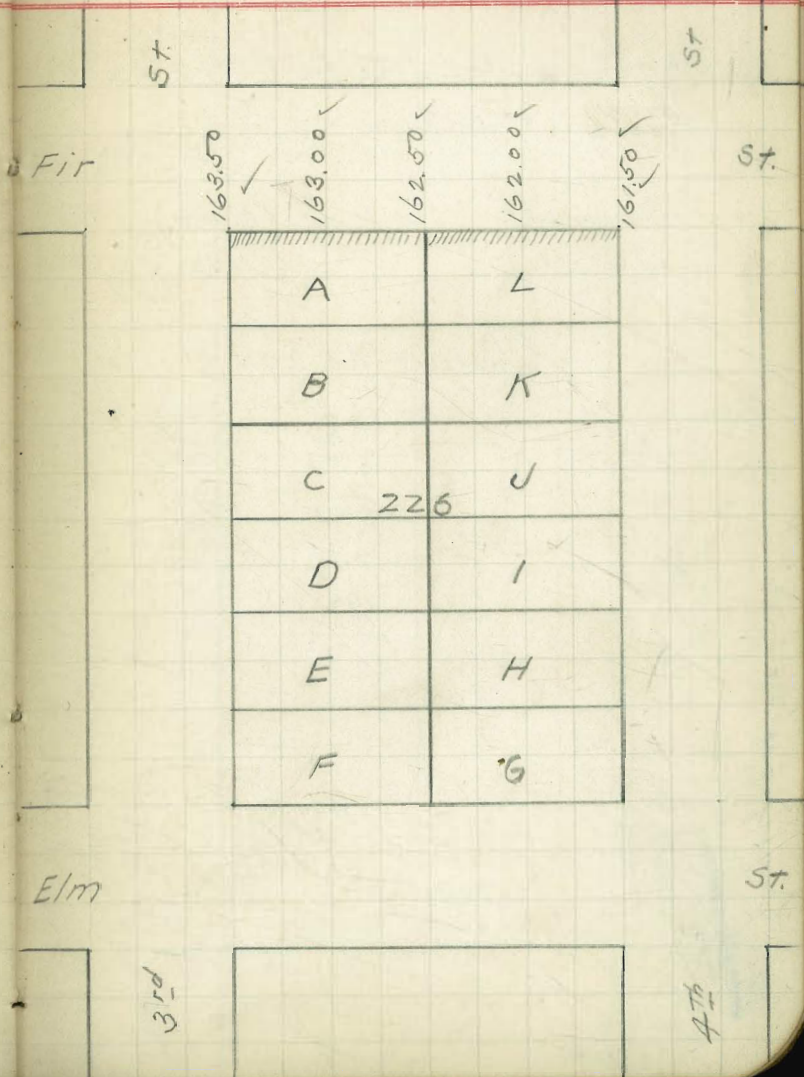 St. St
Fir St.
163.50 163.00 162.50 162.00 161.50
A L
B K
C J
226
D I
E H
F G
Elm St.
3rd 4Th